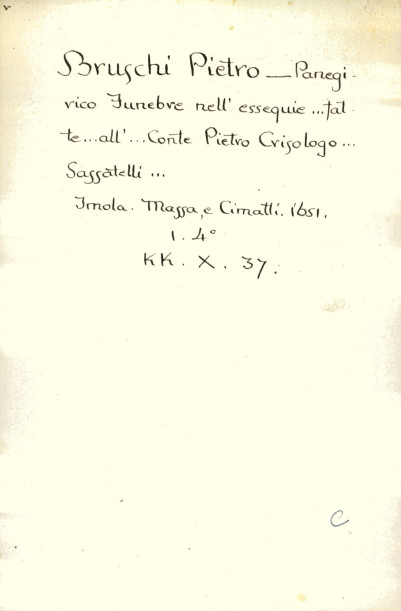 Bruschi Pietro — Panegi-
rico Funebre nell' essequie ... fat-
te ... all' ... Conte Pietro Crisologo ...
Sassatelli ...
Imola. Massa, e Cimatti. 1651.
1. 4°
KK. X. 37.
C